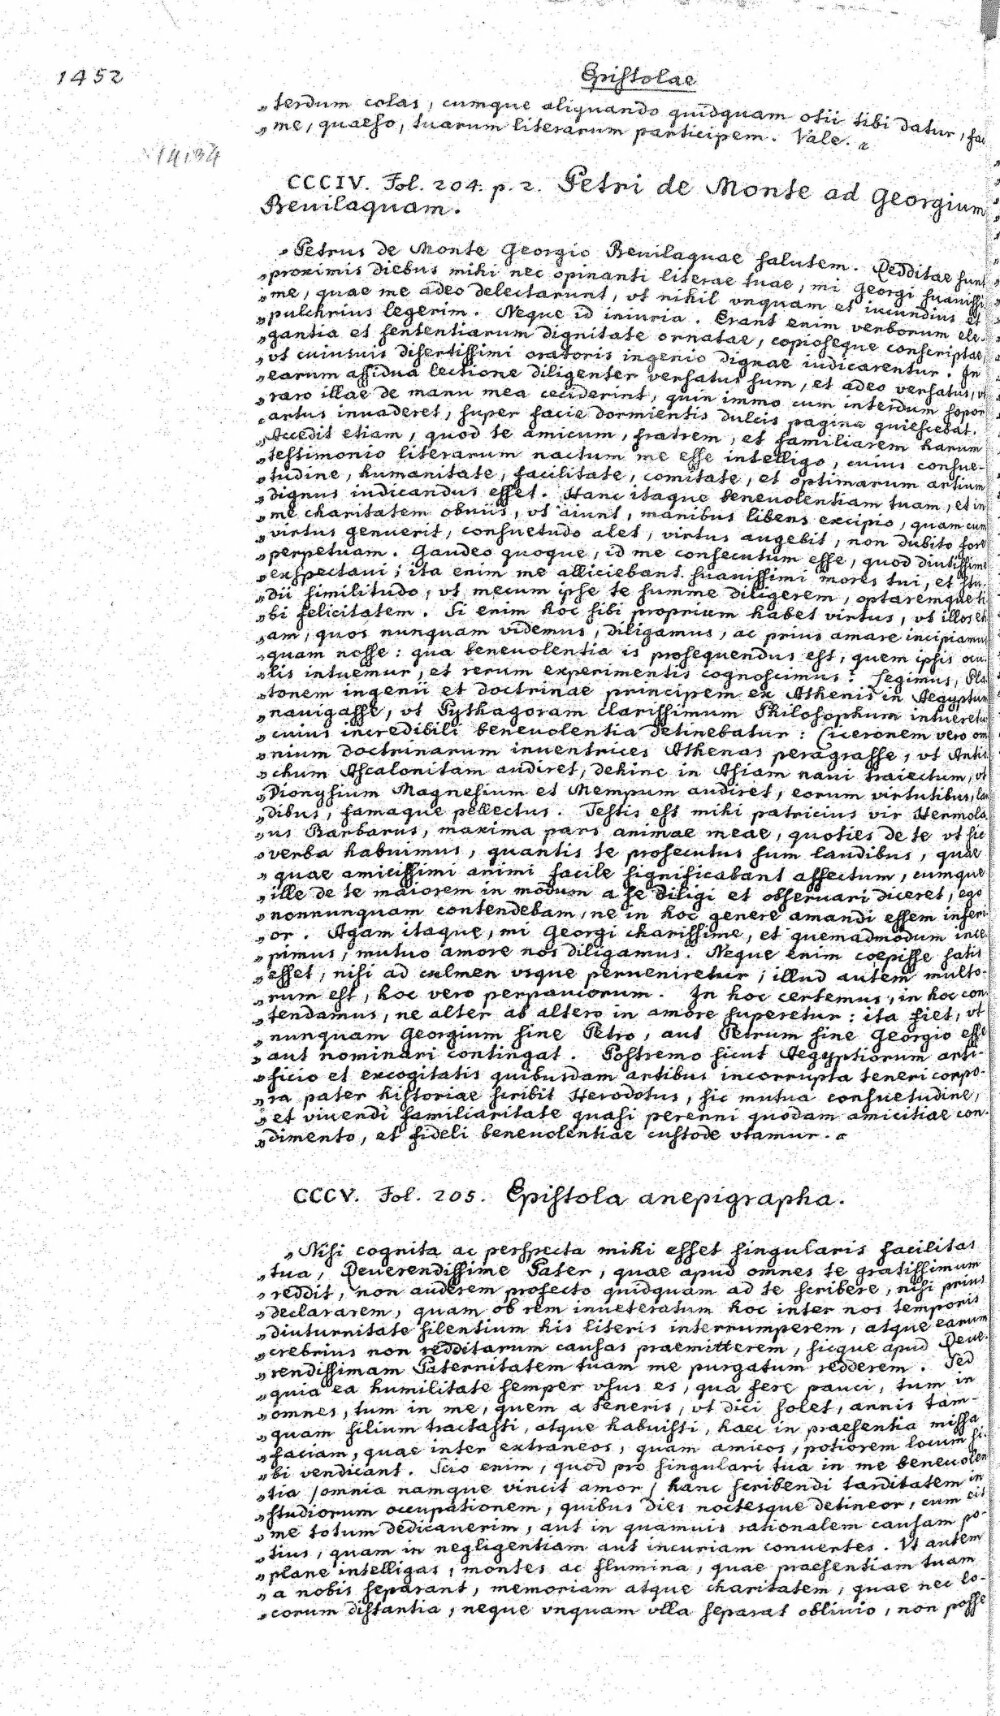 1452
Epistolae
„terdum colas, cumque aliquando quidquam otii tibi datur, fac
„me, quaeso, tuarum literarum participem. Vale. "
14134
CCCIV. Fol. 204. p. 2. Petri de Monte ad Georgium
Beuilaquam.
„Petrus de Monte Georgio Beuilaquae salutem. Redditae sunt
„proximis diebus mihi nec opinanti literae tuae, mi Georgi suauissi
„me, quae me adeo delectarunt, vt nihil vnquam et iucundius et
„pulchrius legerim. Neque id iniuria. Erant enim verborum ele-
„gantia et sententiarum dignitate ornatae, copioseque conscriptae,
„vt cuiusuis disertissimi oratoris ingenio dignae iudicarentur. In
„earum assidua lectione diligenter versatus sum, et adeo versatus, vt
„raro illae de manu mea ceciderint, quin immo cum interdum sopor
„artus inuaderet, super facie dormientis dulcis pagina quiescebat.
„Accedit etiam, quod te amicum, fratrem, et familiarem harum
„testimonio literarum nactum me esse intelligo, cuius consue-
„tudine, humanitate, facilitate, comitate, et optimarum artium
„dignus iudicandus esset. Hanc itaque beneuolentiam tuam, et in
„me charitatem obuiis, vt aiunt, manibus libens excipio, quam cum
„virtus genuerit, consuetudo alet, virtus augebit, non dubito fore
„perpetuam. Gaudeo quoque, id me consecutum esse, quod diutissime
„exspectaui; ita enim me alliciebant suauissimi mores tui, et stu-
„dii similitudo, vt mecum ipse te summe diligerem, optaremque ti
„bi felicitatem. Si enim hoc sibi proprium habet virtus, vt illos eti
„am, quos nunquam videmus, diligamus, ac prius amare incipiamus
„quam nosse: qua beneuolentia is prosequendus est, quem ipsis ocu
„lis intuemur, et rerum experimentis cognoscimus? Legimus, Pla
„tonem ingenii et doctrinae principem ex Athenis in Aegyptum
„nauigasse, vt Pythagoram clarissimum Philosophum intueretur
„cuius incredibili beneuolentia detinebatur: Ciceronem vero om
„nium doctrinarum inuentrices Athenas peragrasse, vt Antio
„chum Ascalonitam audiret, dehinc in Asiam naui traiectum, vt
„Dionysium Magnesium et Mempum audiret, eorum virtutibus, lau
„dibus, famaque pellectus. Testis est mihi patricius vir Hermola
„us Barbarus, maxima pars animae meae, quoties de te vt sic
„verba habuimus, quantis te prosecutus sum laudibus, quae
„quae amicissimi animi facile significabant affectum, cumque
„ille de te maiorem in modum a se diligi et obseruari diceret, ego
„nonnunquam contendebam, ne in hoc genere amandi essem inferi
„or. Agam itaque, mi Georgi charissime, et quemadmodum ince
„pimus, mutuo amore nos diligamus. Neque enim coepisse satis
„esset, nisi ad culmen vsque perueniretur; illud autem multo-
„rum est, hoc vero perpauciorum. In hoc certemus, in hoc con
„tendamus, ne alter ab altero in amore superetur: ita fiet, vt
„nunquam Georgium sine Petro, aut Petrum sine Georgio esse
„aut nominari contingat. Postremo sicut Aegyptiorum arti-
„ficio et excogitatis quibusdam artibus incorrupta teneri corpo-
„ra pater historiae scribit Herodotus, sic mutua consuetudine,
„et viuendi familiaritate quasi perenni quodam amicitiae con-
„dimento, et fideli beneuolentiae custode vtamur. "
CCCV. Fol. 205. Epistola anepigrapha.
„Nisi cognita ac perspecta mihi esset singularis facilitas
„tua, Reuerendissime Pater, quae apud omnes te gratissimum
„reddit, non auderem profecto quidquam ad te scribere, nisi prius
„declararem, quam ob rem inueteratum hoc inter nos temporis
„diuturnitate silentium his literis interrumperem, atque earum
„crebrius non redditarum causas praemitterem, sicque apud Reue-
„rendissimam Paternitatem tuam me purgatum redderem. Sed
„quia ea humilitate semper vsus es, qua fere pauci, tum in
„omnes, tum in me, quem a teneris, vt dici solet, annis tam-
„quam filium tractasti, atque habuisti, haec in praesentia missa
„faciam, quae inter extraneos, quam amicos, potiorem locum si-
„bi vendicant. Scio enim, quod pro singulari tua in me beneuolen
„tia /omnia namque vincit amor/ hanc scribendi tarditatem in
„studiorum occupationem, quibus dies noctesque detineor, cum eis
„me totum dedicauerim, aut in quamuis rationalem causam po-
„tius, quam in negligentiam aut incuriam conuertes. Vt autem
„plane intelligas, montes ac flumina, quae praesentiam tuam
„a nobis separant, memoriam atque charitatem, quae nec lo-
„corum distantia, neque vnquam vlla separat obliuio, non posse